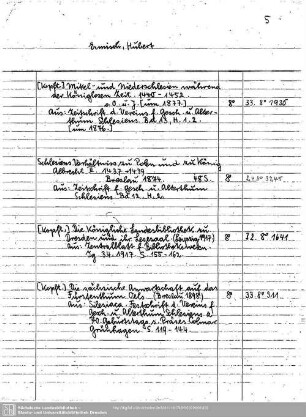 5
Ermisch, Hubert
(Kopft.) Mittel- und Niederschlesien während
der königslosen Zeit. 1440-1452
o. O. u. J. [um 1877.] 8° 33. 8° 1936
Aus: Zeitschrift d. Vereins f. Gesch. u. Alter-
thum Schlesiens. Bd 13, H. 1. 2.
[um 1876.]
Schlesiens Verhältniss zu Polen und zu König
Albrecht II. 1437-1439
Breslau 1874. 48 S. 8°
Aus: Zeitschrift f. Gesch. u. Alterthum
Schlesiens Bd 12, H. 2.
(Kopft.) Die Königliche Landesbibliothek zu
Dresden und ihr Lesesaal (Leipzig 1917) 8° 12. 8° 1641
Aus: Zentralblatt f. Bibliothekswesen
Jg 34. 1917. S. 155-162.
(Kopft.) Die sächsische Anwartschaft auf das
Fürstenthum Oels. (Breslau 1898) 8° 33 8° 311
Aus: Silesiaca. Festschrift d. Vereins f.
Gesch. u. Alterthum Schlesiens z.
70. Geburtstage s. Präses Colmar
Grünhagen S. 119-144